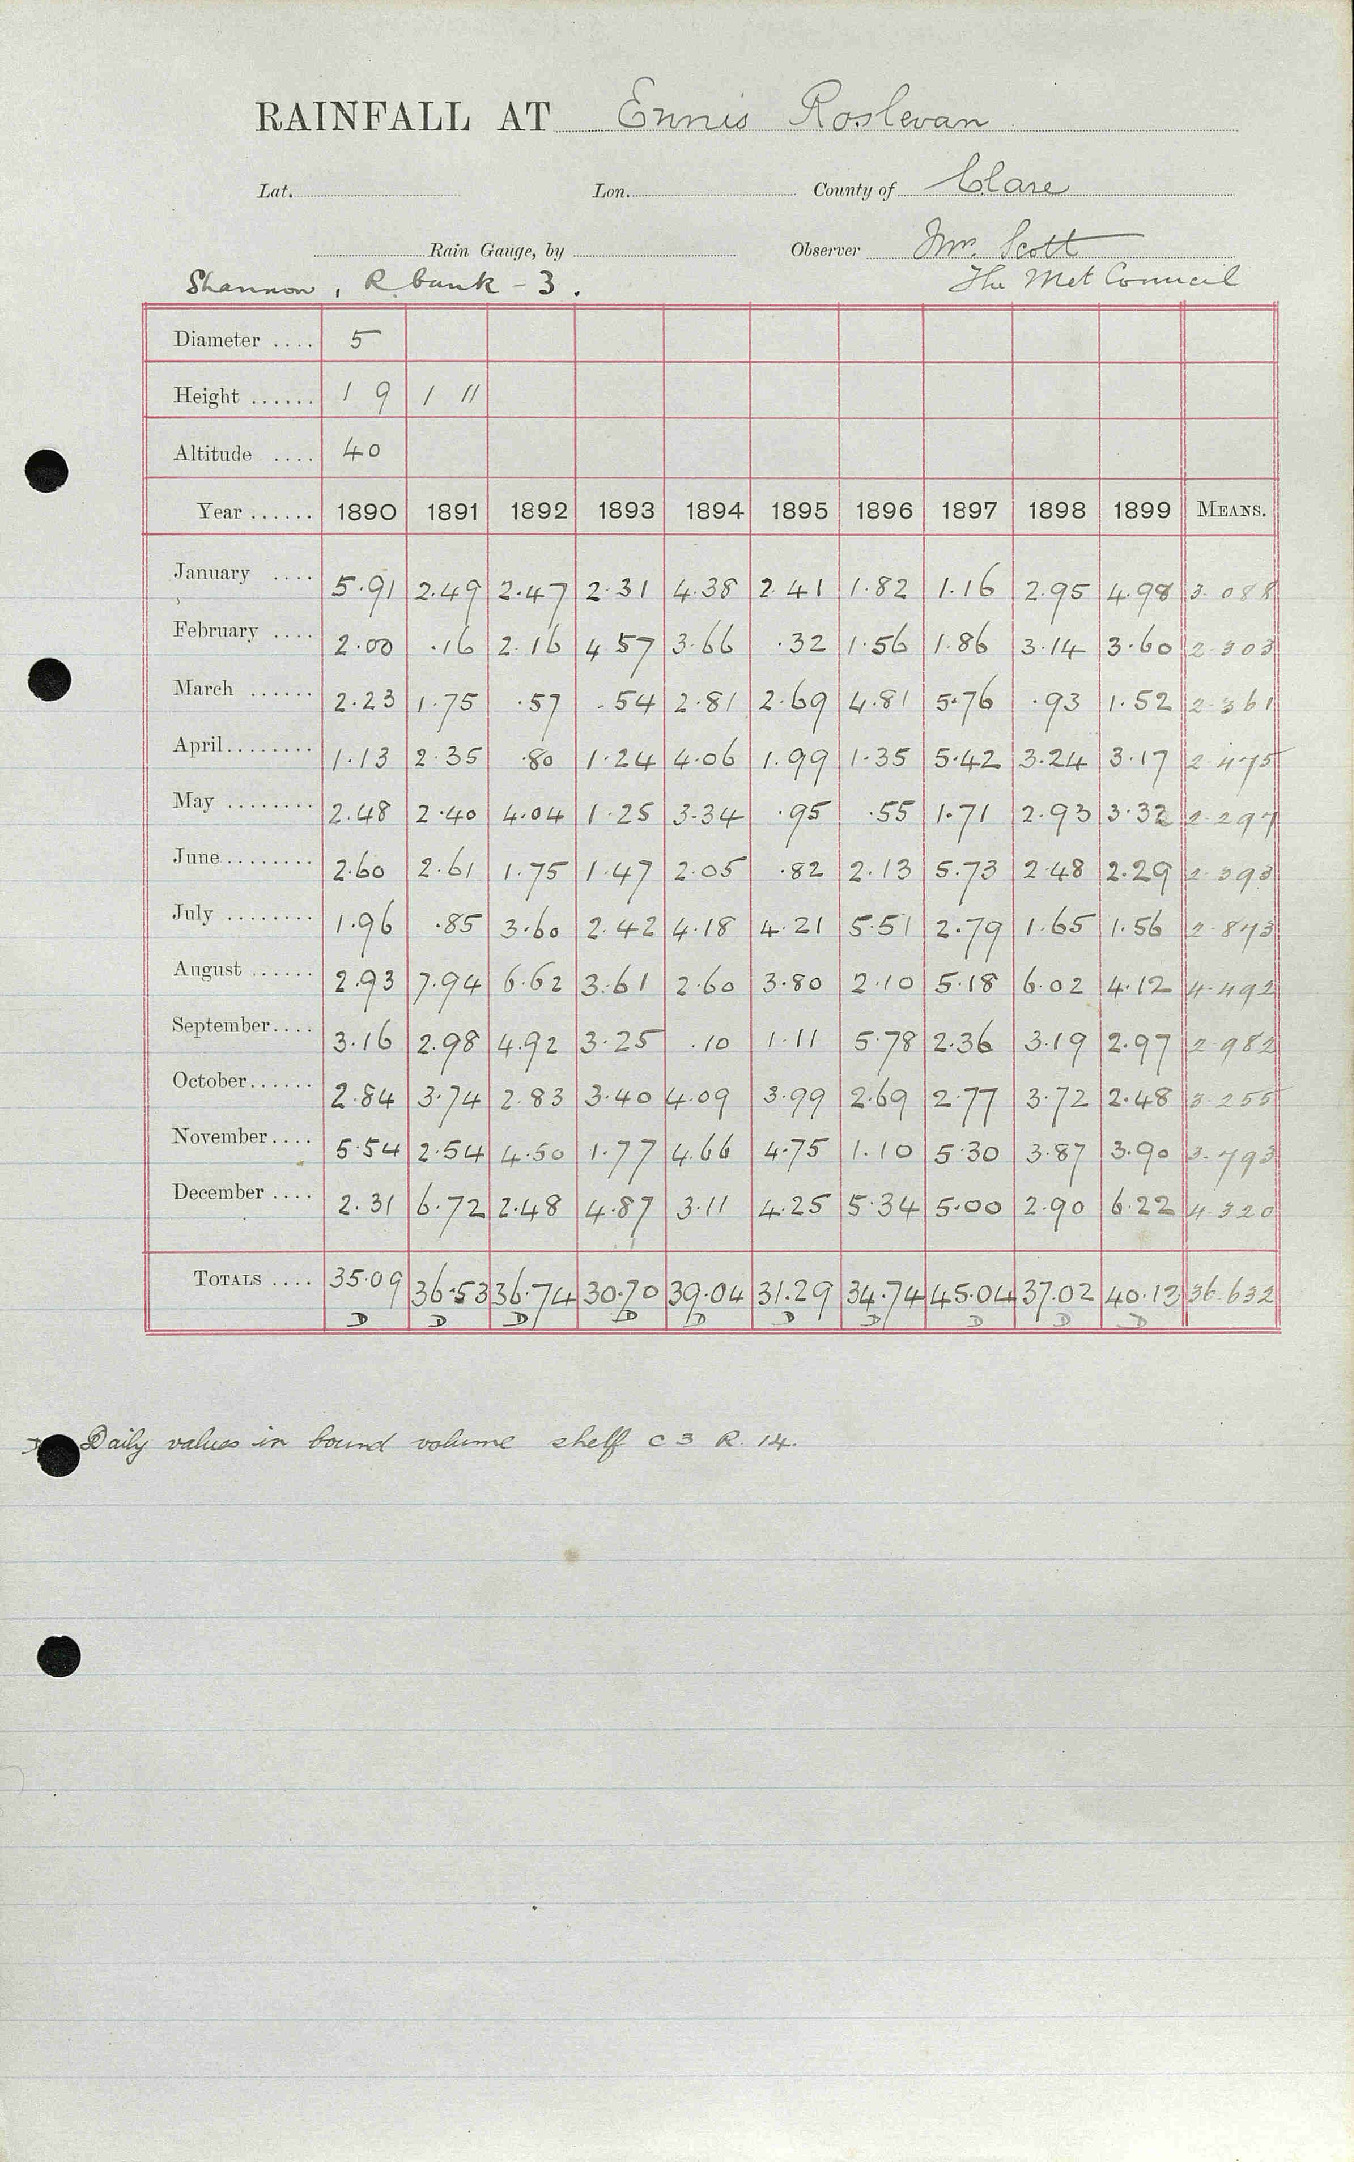 RAINFALL AT Ennis Roslevan
Lat. Lon. County of Clare
Rain Gauge, by Observer Mr. Scott
Shannon, R. bank - 3. The Met Council
Diameter .... 5
Height ...... 1 9 1 11
Altitude .... 40
Year ...... 1890 1891 1892 1893 1894 1895 1896 1897 1898 1899 MEANS.
January .... 5.91 2.49 2.47 2.31 4.38 2.41 1.82 1.16 2.95 4.98 3.088
February .... 2.00 .16 2.16 4.57 3.66 .32 1.56 1.86 3.14 3.60 2.303
March ...... 2.23 1.75 .57 .54 2.81 2.69 4.81 5.76 .93 1.52 2.361
April ........ 1.13 2.35 .80 1.24 4.06 1.99 1.35 5.42 3.24 3.17 2.475
May ........ 2.48 2.40 4.04 1.25 3.34 .95 .55 1.71 2.93 3.32 2.297
June ......... 2.60 2.61 1.75 1.47 2.05 .82 2.13 5.73 2.48 2.29 2.393
July ........ 1.96 .85 3.60 2.42 4.18 4.21 5.51 2.79 1.65 1.56 2.873
August ...... 2.93 7.94 6.62 3.61 2.60 3.80 2.10 5.18 6.02 4.12 4.492
September .... 3.16 2.98 4.92 3.25 .10 1.11 5.78 2.36 3.19 2.97 2.982
October ...... 2.84 3.74 2.83 3.40 4.09 3.99 2.69 2.77 3.72 2.48 3.255
November .... 5.54 2.54 4.50 1.77 4.66 4.75 1.10 5.30 3.87 3.90 3.793
December .... 2.31 6.72 2.48 4.87 3.11 4.25 5.34 5.00 2.90 6.22 4.320
TOTALS .... 35.09 36.53 36.74 30.70 39.04 31.29 34.74 45.04 37.02 40.13 36.632
D D D D D D D D D D
Daily values in bound volume shelf C 3 R. 14.